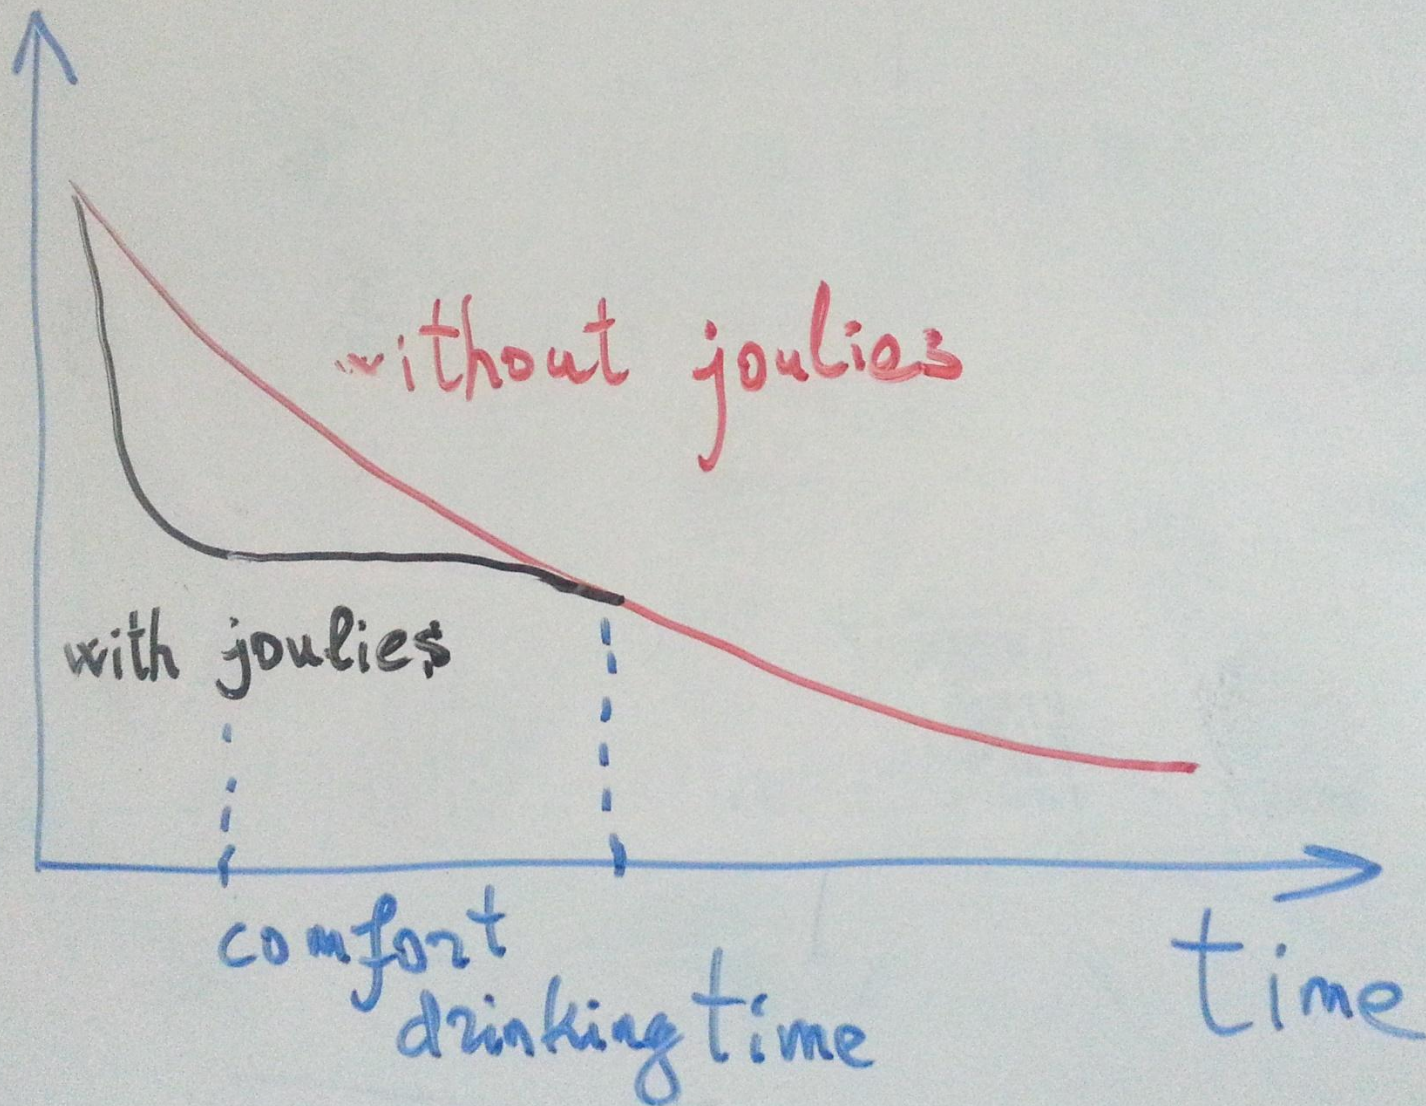 without joulies
with joulies
comfort
drinking time
time